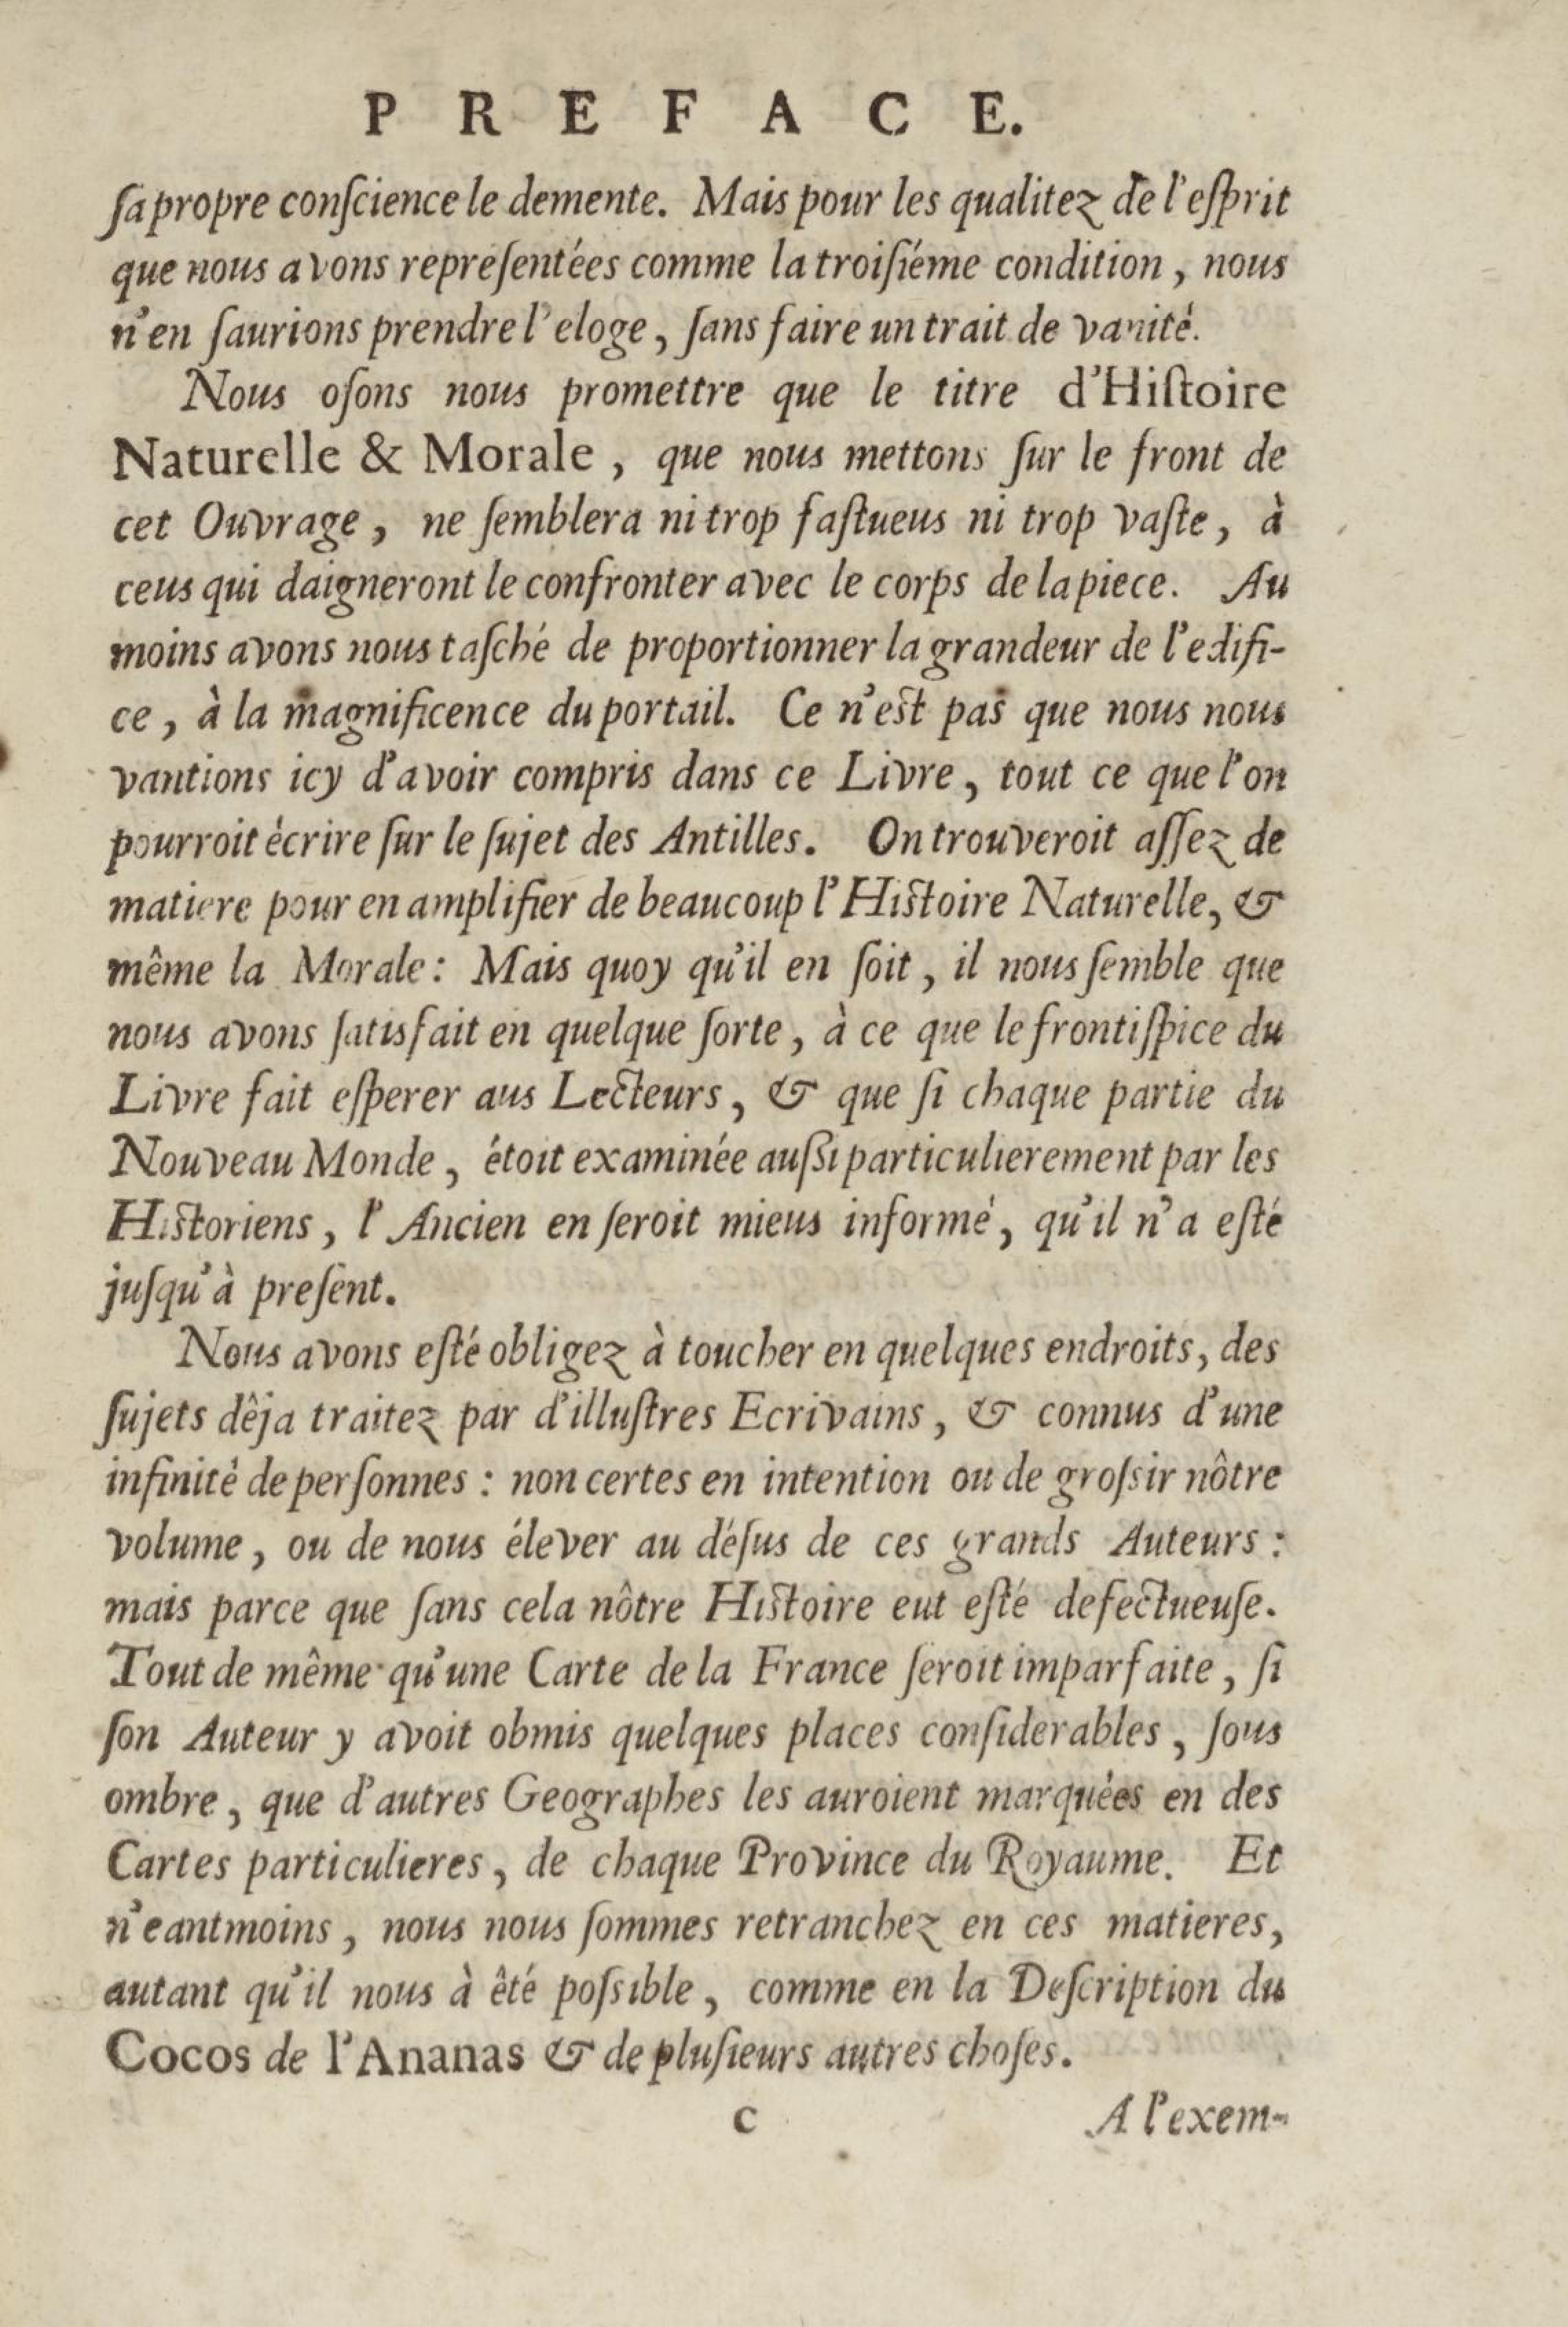 PREFACE.
ſa propre conſcience le demente. Mais pour les qualitez de l'eſprit
que nous avons repreſentées comme la troiſiéme condition, nous
n'en ſaurions prendre l'eloge, ſans faire un trait de vanité.
Nous oſons nous promettre que le titre d'Hiſtoire
Naturelle & Morale, que nous mettons ſur le front de
cet Ouvrage, ne ſemblera ni trop faſtueus ni trop vaſte, à
ceus qui daigneront le confronter avec le corps de la piece. Au
moins avons nous taſché de proportionner la grandeur de l'edifi-
ce, à la magnificence du portail. Ce n'eſt pas que nous nous
vantions icy d'avoir compris dans ce Livre, tout ce que l'on
pourroit écrire ſur le ſujet des Antilles. On trouveroit aſſez de
matiere pour en amplifier de beaucoup l'Hiſtoire Naturelle, &
même la Morale: Mais quoy qu'il en ſoit, il nous ſemble que
nous avons ſatisfait en quelque ſorte, à ce que le frontiſpice du
Livre fait eſperer aus Lecteurs, & que ſi chaque partie du
Nouveau Monde, étoit examinée auſſi particulierement par les
Hiſtoriens, l'Ancien en ſeroit mieus informé, qu'il n'a eſté
juſqu'à preſent.
Nous avons eſté obligez à toucher en quelques endroits, des
ſujets dêja traitez par d'illuſtres Ecrivains, & connus d'une
infinité de perſonnes: non certes en intention ou de groſsir nôtre
volume, ou de nous élever au déſus de ces grands Auteurs:
mais parce que ſans cela nôtre Hiſtoire eut eſté defectueuſe.
Tout de même qu'une Carte de la France ſeroit imparfaite, ſi
ſon Auteur y avoit obmis quelques places conſiderables, ſous
ombre, que d'autres Geographes les auroient marquées en des
Cartes particulieres, de chaque Province du Royaume. Et
n'eantmoins, nous nous ſommes retranchez en ces matieres,
autant qu'il nous à êté poſsible, comme en la Deſcription du
Cocos de l'Ananas & de pluſieurs autres choſes.
c A l'exem-